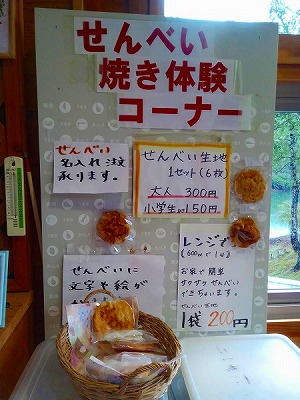 せんべい
焼き体験
コーナー
せんべい
名入れ注文
承ります。
せんべい生地
1セット(6枚)
大人 300円
小学生 150円
レンジで
(600Wで1分)
お家で簡単
サクサクせんべい
できちゃいます。
せんべい生地
1袋200円
せんべいに
文字や絵が